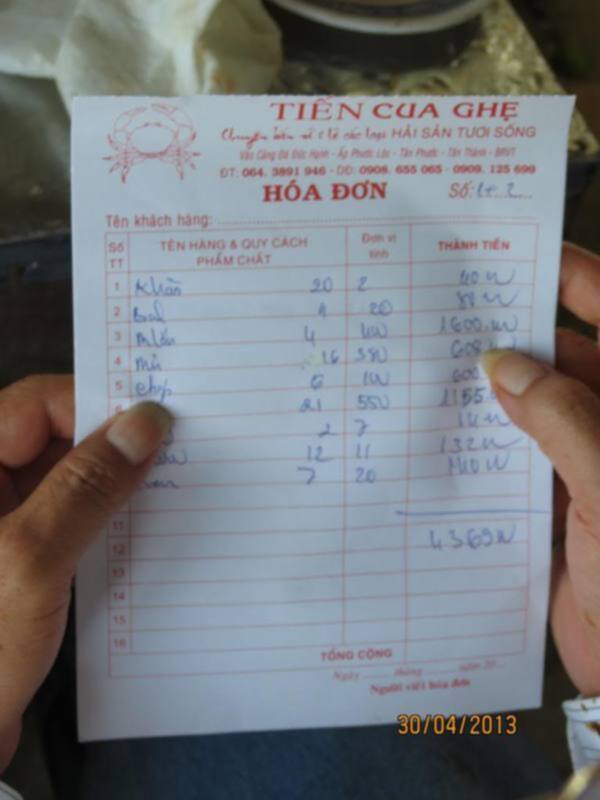 TIẾN CUA GHẸ
Chuyên bán sỉ & lẻ các loại HẢI SẢN TƯƠI SỐNG
Vào Cảng Đá Đức Hạnh - Ấp Phước Lộc - Tân Phước - Tân Thành - BRVT
ĐT: 064. 3891 946 - DĐ: 0908. 655 065 - 0909. 125 699
HÓA ĐƠN Số:
Tên khách hàng:
Số TT TÊN HÀNG & QUY CÁCH PHẨM CHẤT Đơn vị tính THÀNH TIỀN
1 Khăn 20 2 40
2 20
3 4 400 1600
4 16 380 608
5 6 100 600
21 550 1155
2 7 14
12 11 132
7 20 140
11
12 4369
13
14
15
16
TỔNG CỘNG
Ngày ...... tháng ...... năm 20...
Người viết hóa đơn
30/04/2013